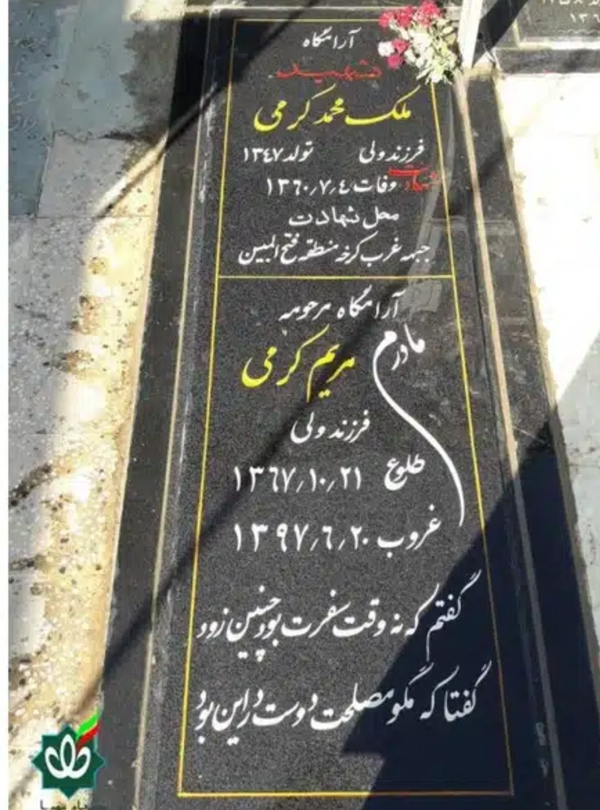 آرامگاه
شهید
ملک محمد کرمی
فرزند ولی تولد ۱۳۴۷
شهادت وفات ۱۳۶۰/۷/۴
محل شهادت
جبهه غرب کرخه منطقه فتح المبین
آرامگاه مرحومه
مادرم
مریم کرمی
فرزند ولی
طلوع ۱۳۶۷/۱۰/۲۱
غروب ۱۳۹۷/۶/۲۰
گفتم که نه وقت سفرت بود چنین زود
گفتا که مگو مصلحت دوست در این بود